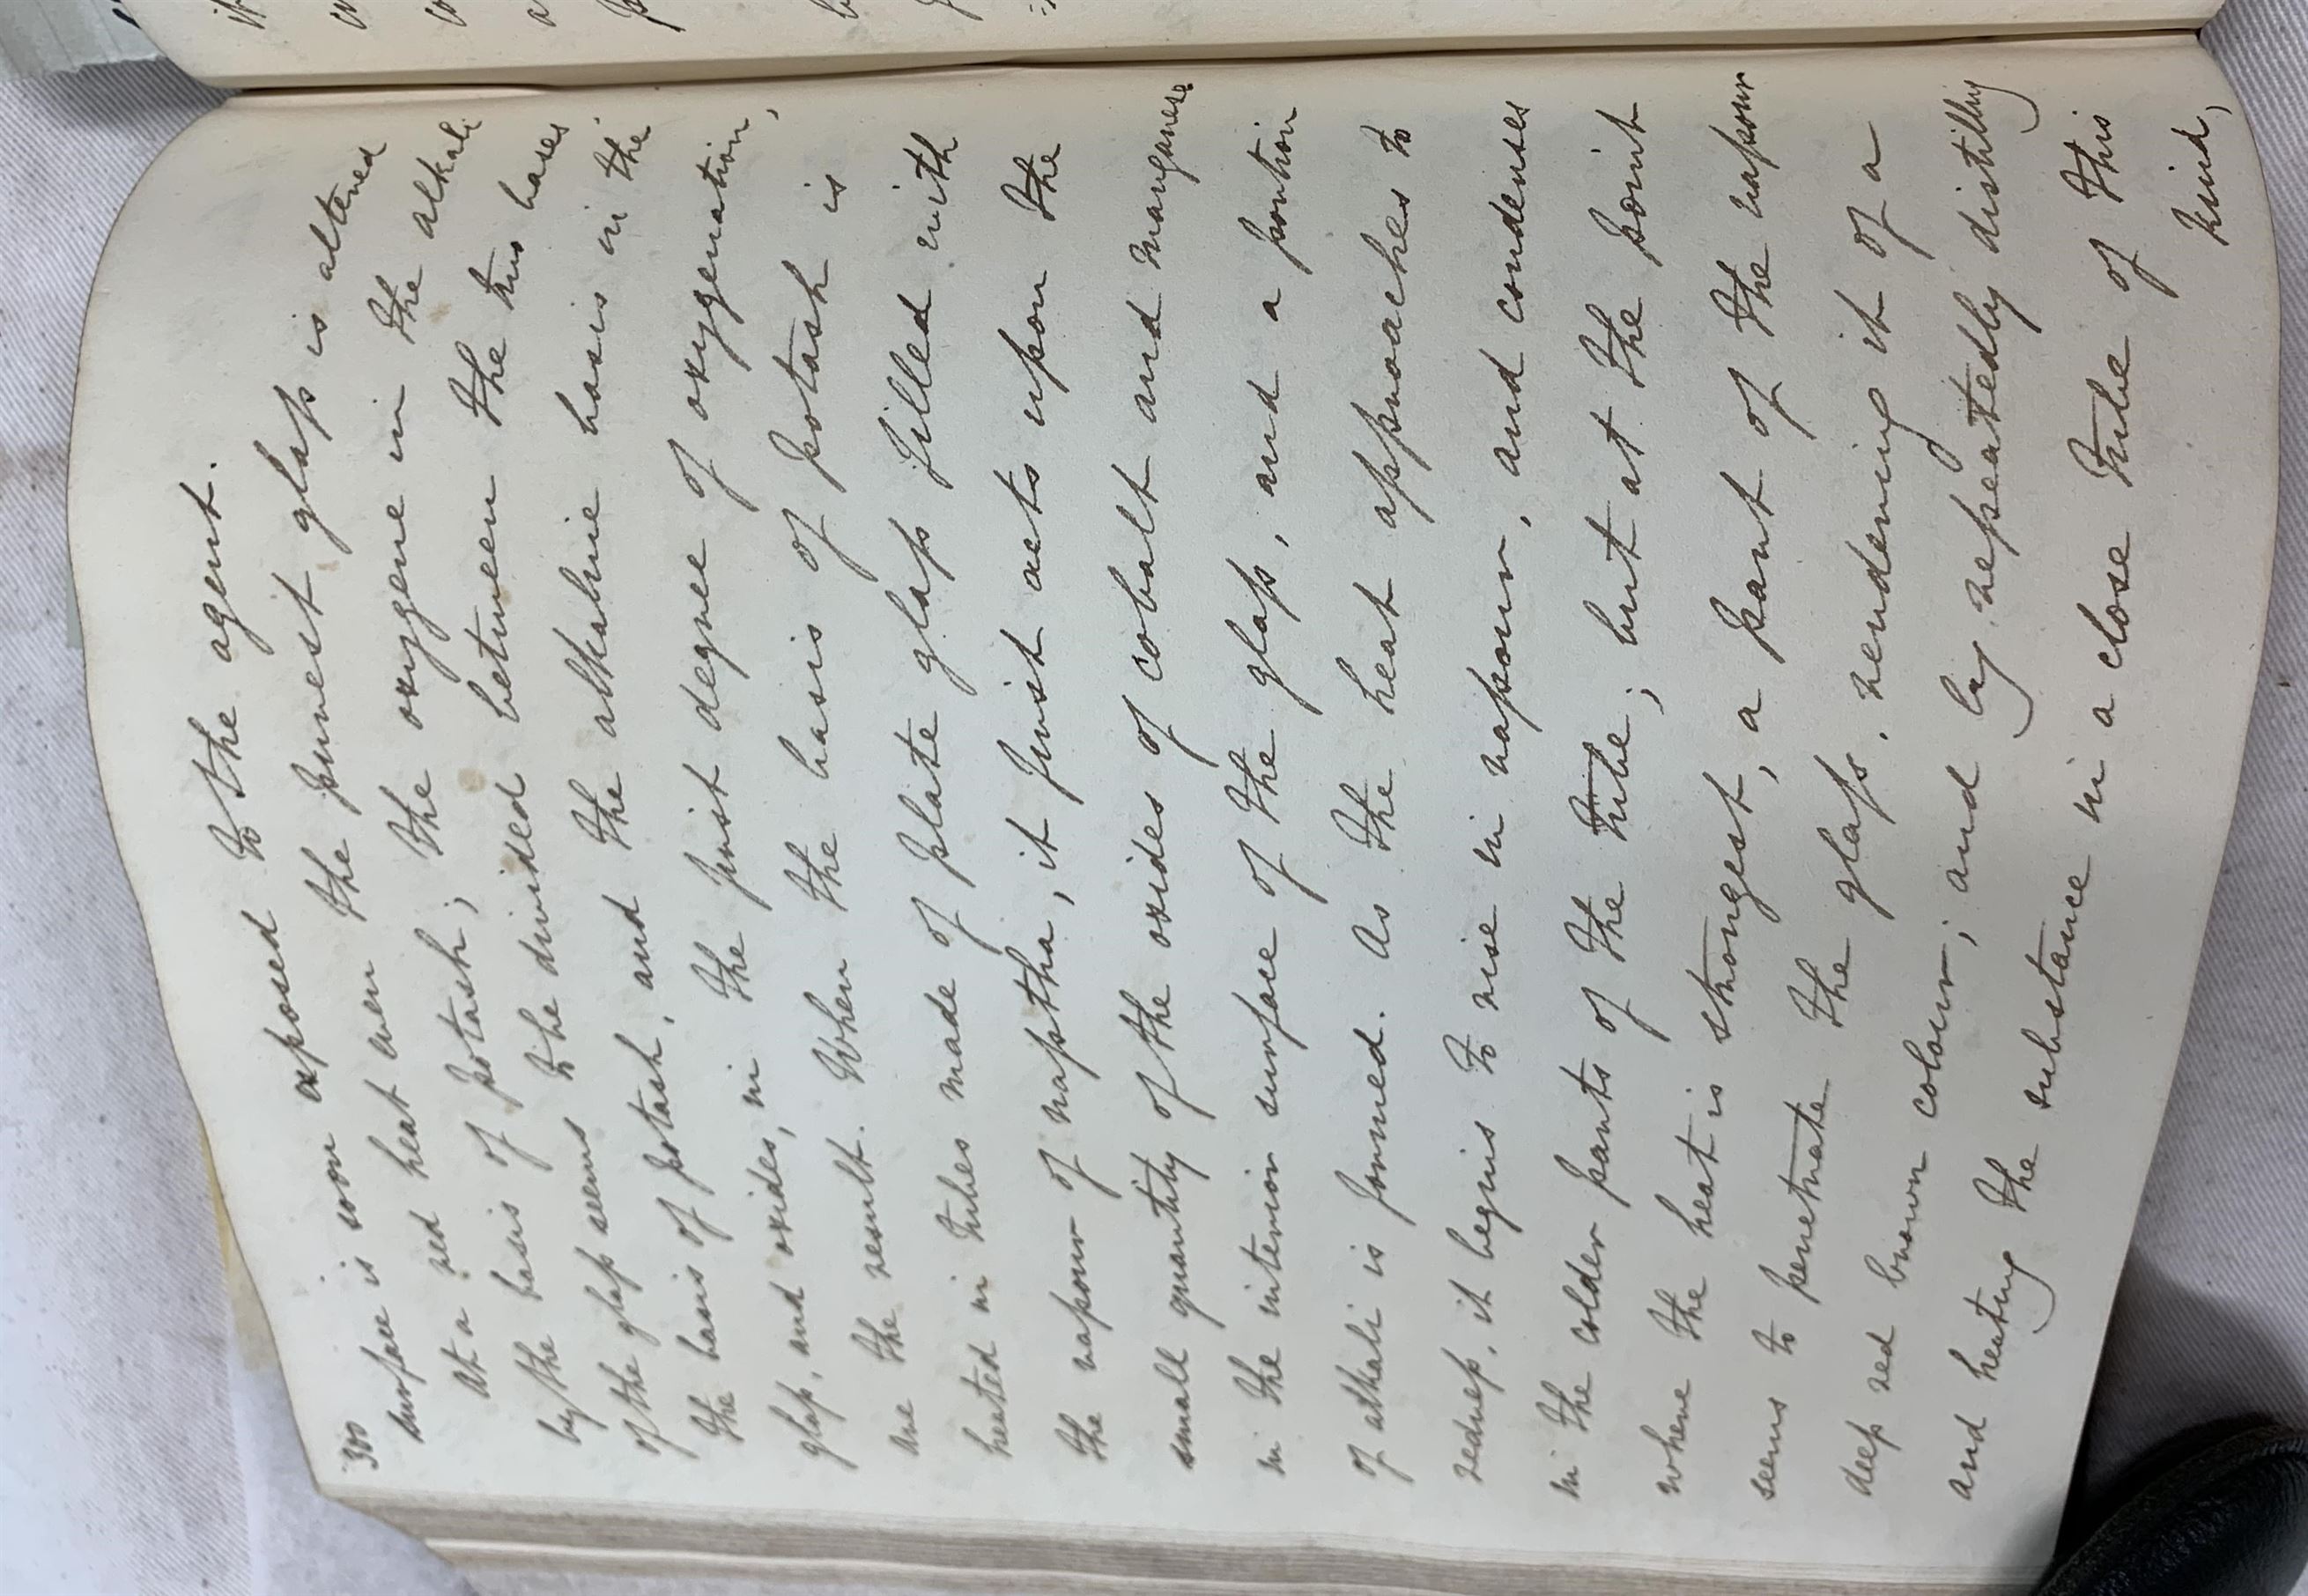 300
surface is soon exposed to the agent.
At a red heat even the purest glass is altered
by the basis of potash; the oxygene in the alkali
of the glass seems to be divided between the two bases
the basis of potash, and the alkaline basis in the
glass, and oxides, in the first degree of oxygenation,
are the result. When the basis of potash is
heated in tubes made of plate glass filled with
the vapour of naptha, it first acts upon the
small quantity of the oxides of cobalt and manganese
in the interior surface of the glass, and a portion
of alkali is formed. As the heat approaches to
redness, it begins to rise in vapour, and condenses
in the colder parts of the tube; but at the point
where the heat is strongest, a part of the vapour
seems to penetrate the glass, rendering it of a
deep red brown colour; and by repeatedly distilling
and heating the substance in a close tube of this
kind,